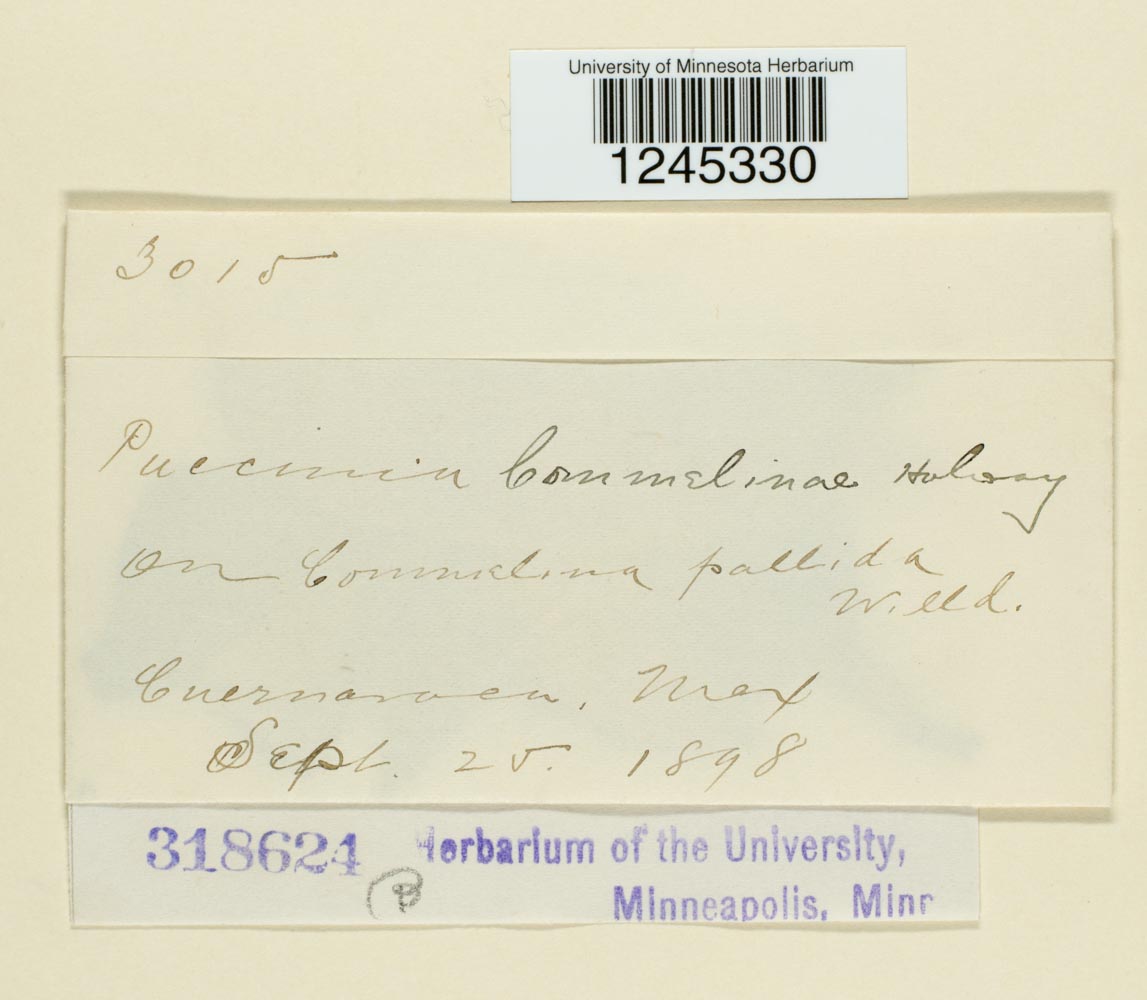 University of Minnesota Herbarium
1245330
3015
Puccinia Commelinae Holway
On Commelina pallida
Willd.
Cuernavaca, Mex
Sept. 25. 1898
318624 Herbarium of the University,
P
Minneapolis, Minn